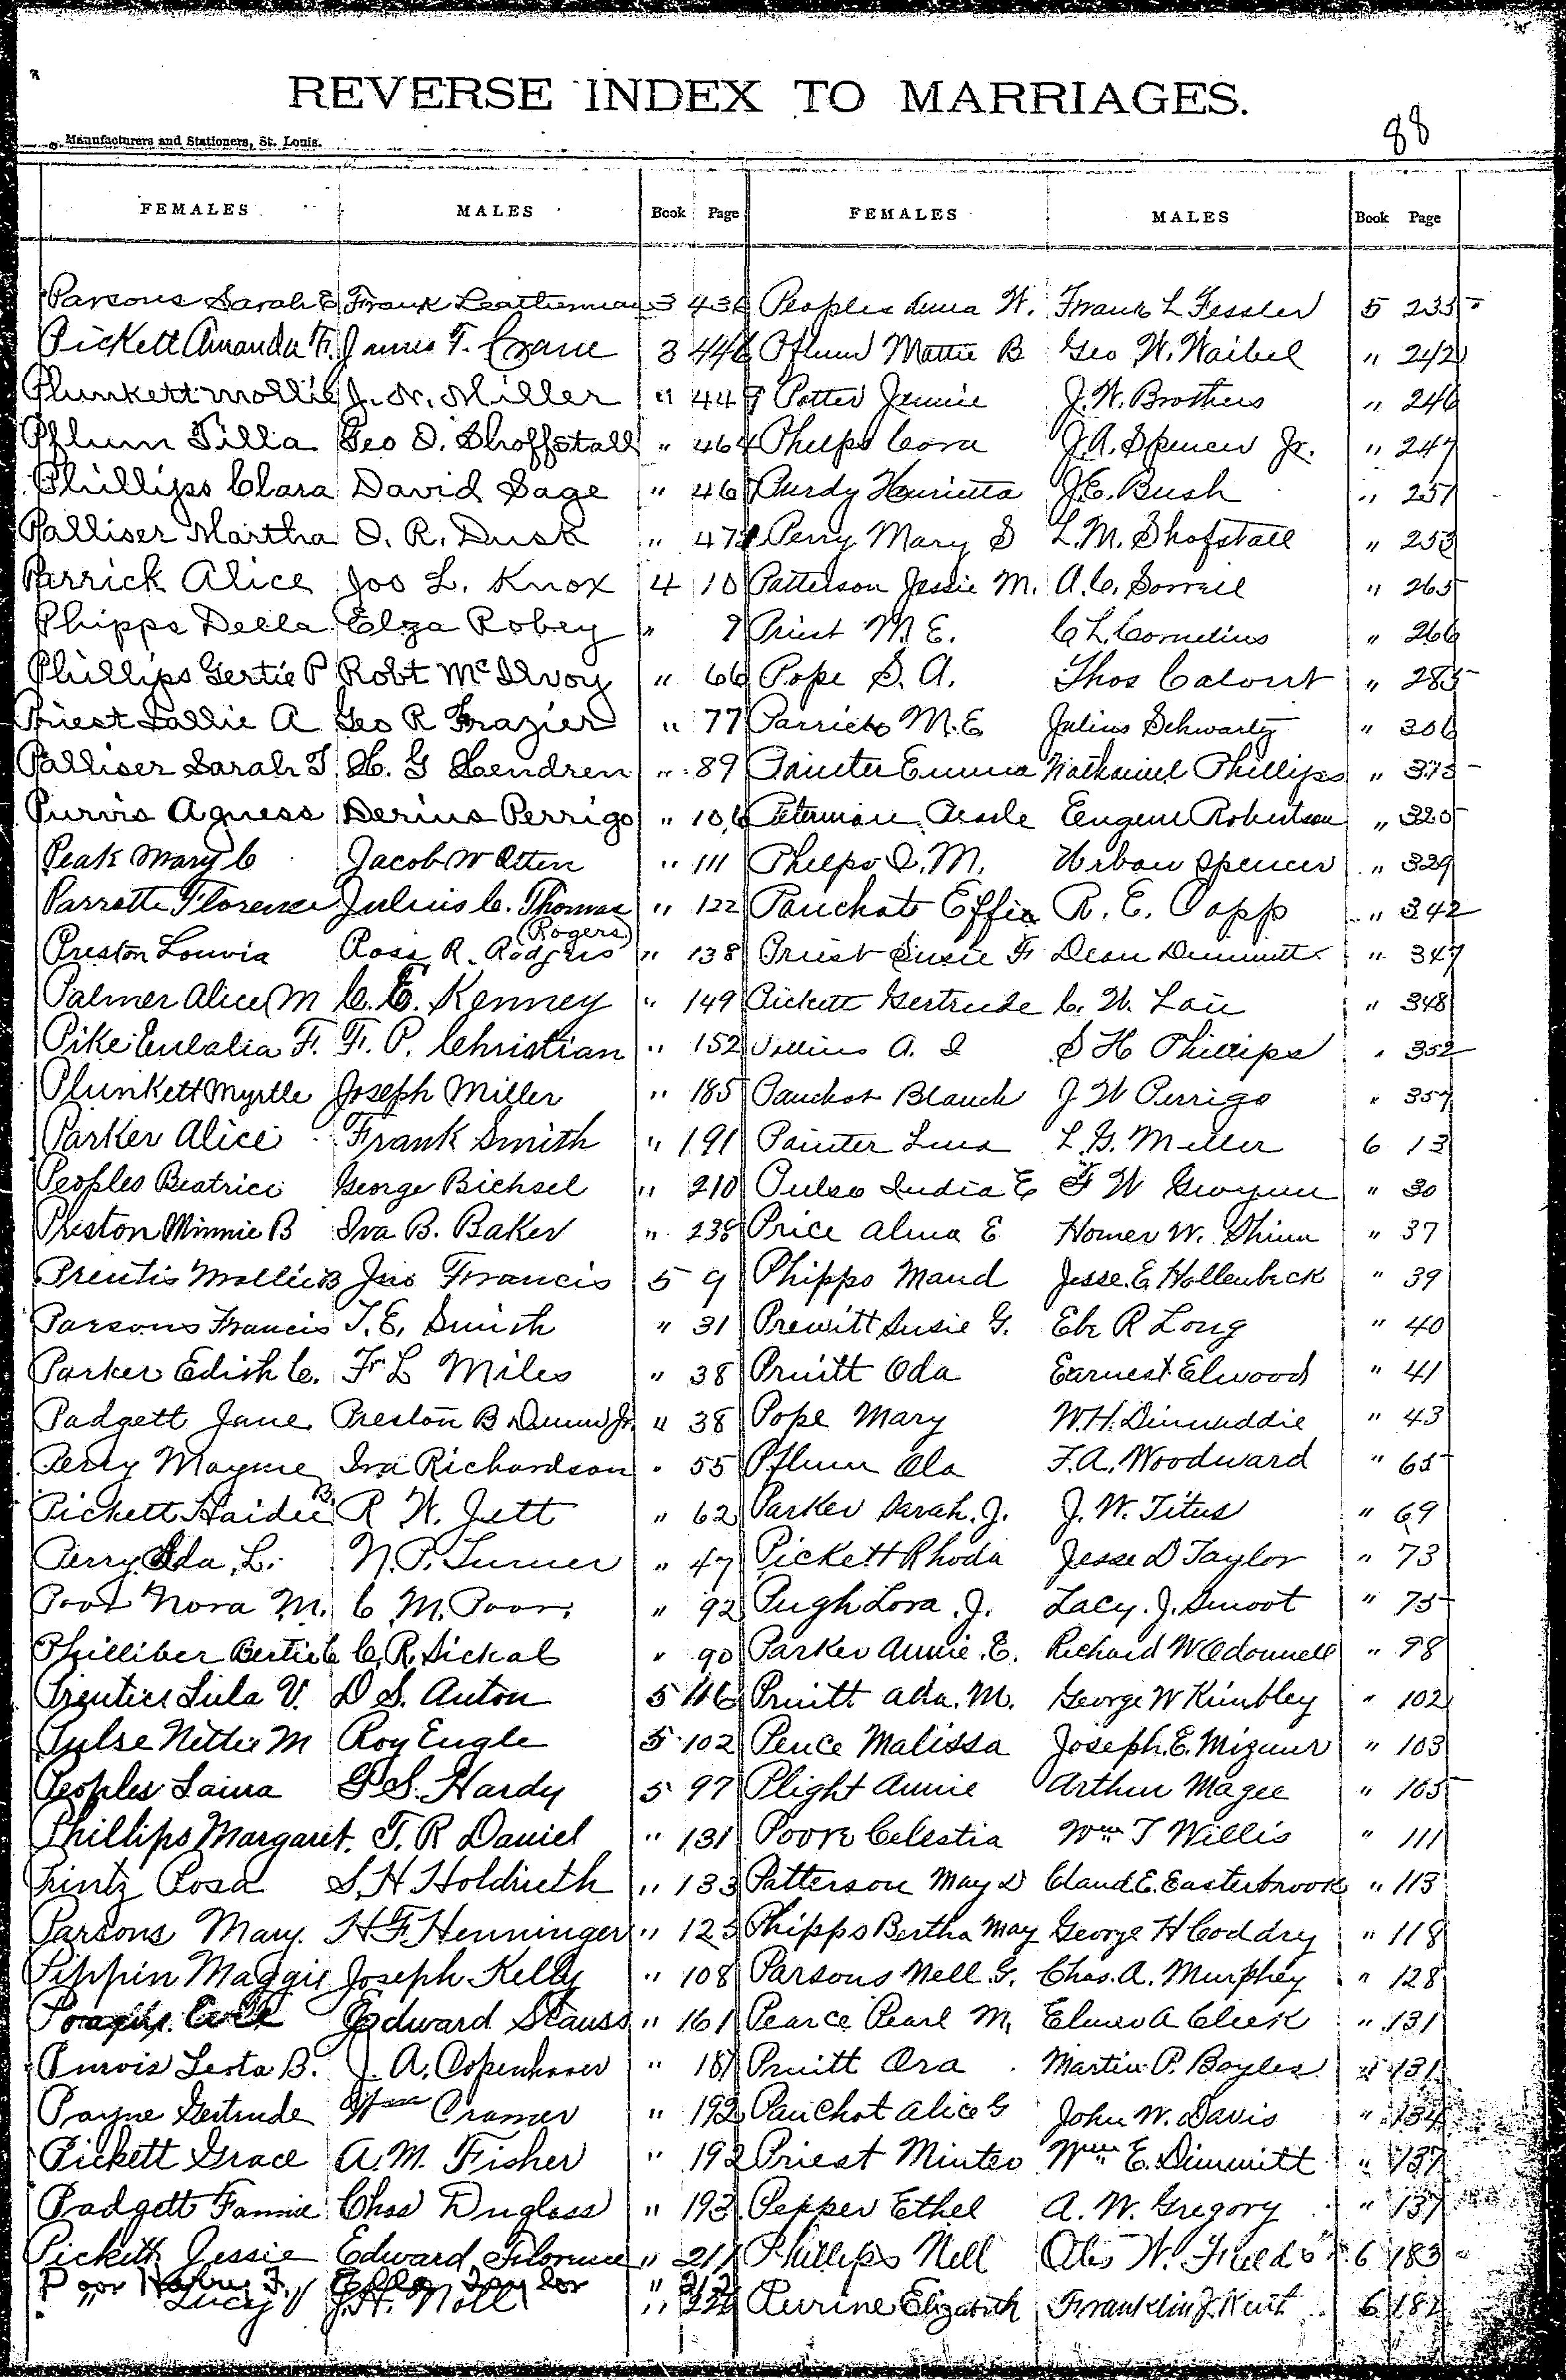 REVERSE INDEX TO MARRIAGES.
88
Manufacturers and Stationers, St. Louis.
FEMALES MALES Book Page FEMALES MALES Book Page
Parsons Sarah E Frank Leatherman 3 436 Peoples Anna W. Frank L Fessler 5 235
Pickett Amanda F. James T. Crane 3 446 Pflum Mattie B Geo W. Waibel " 242
Plunkett Mollie J. N. Miller " 449 Potter Jennie J. W. Brothers " 246
Pflum Tilla Geo D. Shoffstall " 464 Phelps Cora J. A. Spencer Jr. " 247
Phillips Clara David Sage " 467 Purdy Henrietta J. E. Bush " 251
Palliser Martha O. R. Dusk " 471 Perry Mary S L. M. Shofstall " 253
Parrick Alice Jos L. Knox 4 10 Patterson Jessie M. A. C. Sorrell " 265
Phipps Della Elza Robey " 7 Priest M. E. C L. Cornelius " 266
Phillips Gertie P Robt McIlvoy " 66 Pope S. A. Thos Calvert " 285
Priest Sallie A Geo R Frazier " 77 Parrick M. E Julius Schwartz " 306
Palliser Sarah T H. G Hendren " 89 Painter Emma Nathaniel Phillips " 315
Purvis Agness Derius Perrigo " 106 Peterman Eugene Robertson " 320
Peak Mary C Jacob W Otten " 111 Phelps I. M. Urban Spencer " 329
Parrette Florence Julius C. Thomas " 122 Panchot Effie R. E. Capp " 342
Preston Louvia Ross R. Rodgers (Rogers) " 138 Priest Susie F Dean Dimmitt " 347
Palmer Alice M C. E. Kenney " 149 Pickett Gertrude C. W. Lair " 348
Pike Eulalia F. F. P. Christian " 152 A. I S H Phillips " 352
Plunkett Myrtle Joseph Miller " 185 Panchot Blanch J W Perrigo " 357
Parker Alice Frank Smith " 191 Painter Lena L. G. Miller 6 13
Peoples Beatrice George Bichsel " 210 Pulse India E F W Gwynn " 30
Preston Minnie B Iva B. Baker " 238 Price Alma E Homer W. Shinn " 37
Prentis Mollie B Jno Francis 5 9 Phipps Maud Jesse. E Hollenbeck " 39
Parsons Francis T. E. Smith " 31 Prewitt Susie G. Ebr R Long " 40
Parker Edith C. Fr L Miles " 38 Pruitt Oda Earnest Elwood " 41
Padgett Jane Preston B Dunn Jr. " 38 Pope Mary W. H. Dinwiddie " 43
Perry Mayme Ira Richardson " 55 Pflum Ola F. A. Woodward " 65
Pickett Haidee B. R W. Jett " 62 Parker Sarah. J. J. W. Titus " 69
Perry Ida L. N. P. Turner " 47 Pickett Rhoda Jesse D Taylor " 73
Poor Nora M. C M. Poor " 92 Pugh Lora. J. Lacy. J. Smoot " 75
Philliber Bertie C C. R. Sickal " 90 Parker Annie. E. Richard W Odonnell " 98
Prentice Lula V. D S. Anton 5 116 Pruitt Ada. M. George W Kimbley " 102
Pulse Nettie M Roy Engle 5 102 Pence Malissa Joseph. E. Mizner " 103
Peoples Laura G S. Hardy 5 97 Plight Annie Arthur Magee " 105
Phillips Margaret. T. R Daniel " 131 Poore Celestia Wm T Willis " 111
Printz Rosa S. H Holdrieth " 133 Patterson May D Claud E. Easterbrook " 113
Parsons Mary. H. F. Henninger " 123 Phipps Bertha May George H Coddry " 118
Pippin Maggie Joseph Kelly " 108 Parsons Nell G. Chas. A. Murphey " 128
Edward Stauss " 161 Pearce Pearl M. Elmer A Cleek " 131
Purvis Lesta B. J. A. Copenhaver " 187 Pruitt Ora Martin P. Bayles " 131
Payne Gertrude Wm Cramer " 192 Panchot Alice G John W. Davis " 134
Pickett Grace A. M. Fisher " 192 Priest Minteo Wm E. Dimmitt " 137
Padgett Fannie Chas Duglass " 193 Pepper Ethel A. W. Gregory " 137
Pickett Jessie Edward Florence " 211 Phillips Nell W. Fields 6 183
Poor " 212
" Lucy J. H. Noll " Purine Elizabeth Franklin J. Kent 6 182